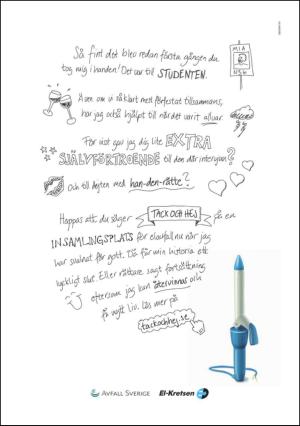 Så fint det blev redan första gången du
tog mig i handen! Det var till STUDENTEN.
MIA
N3b
Även om vi såklart mer förfestat tillsammans,
har jag också hjälpt till när det varit allvar.
För visst gav jag dig lite EXTRA
SJÄLVFÖRTROENDE till den där intervjun?
Och till dejten med han-den-rätte?
Hoppas att du säger TACK OCH HEJ på en
INSAMLINGSPLATS för elavfall nu när jag
har svalnat för gott. Då får min historia ett
lyckligt slut. Eller rättare sagt fortsättning
eftersom jag kan återvinnas och
få nytt liv. Läs mer på
tackochhej.se.
AVFALL SVERIGE El-Kretsen